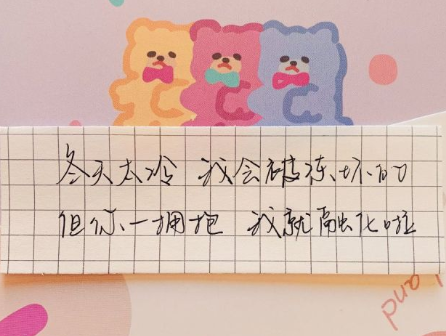 冬天太冷 我会被冻坏的
但你一拥抱 我就融化啦